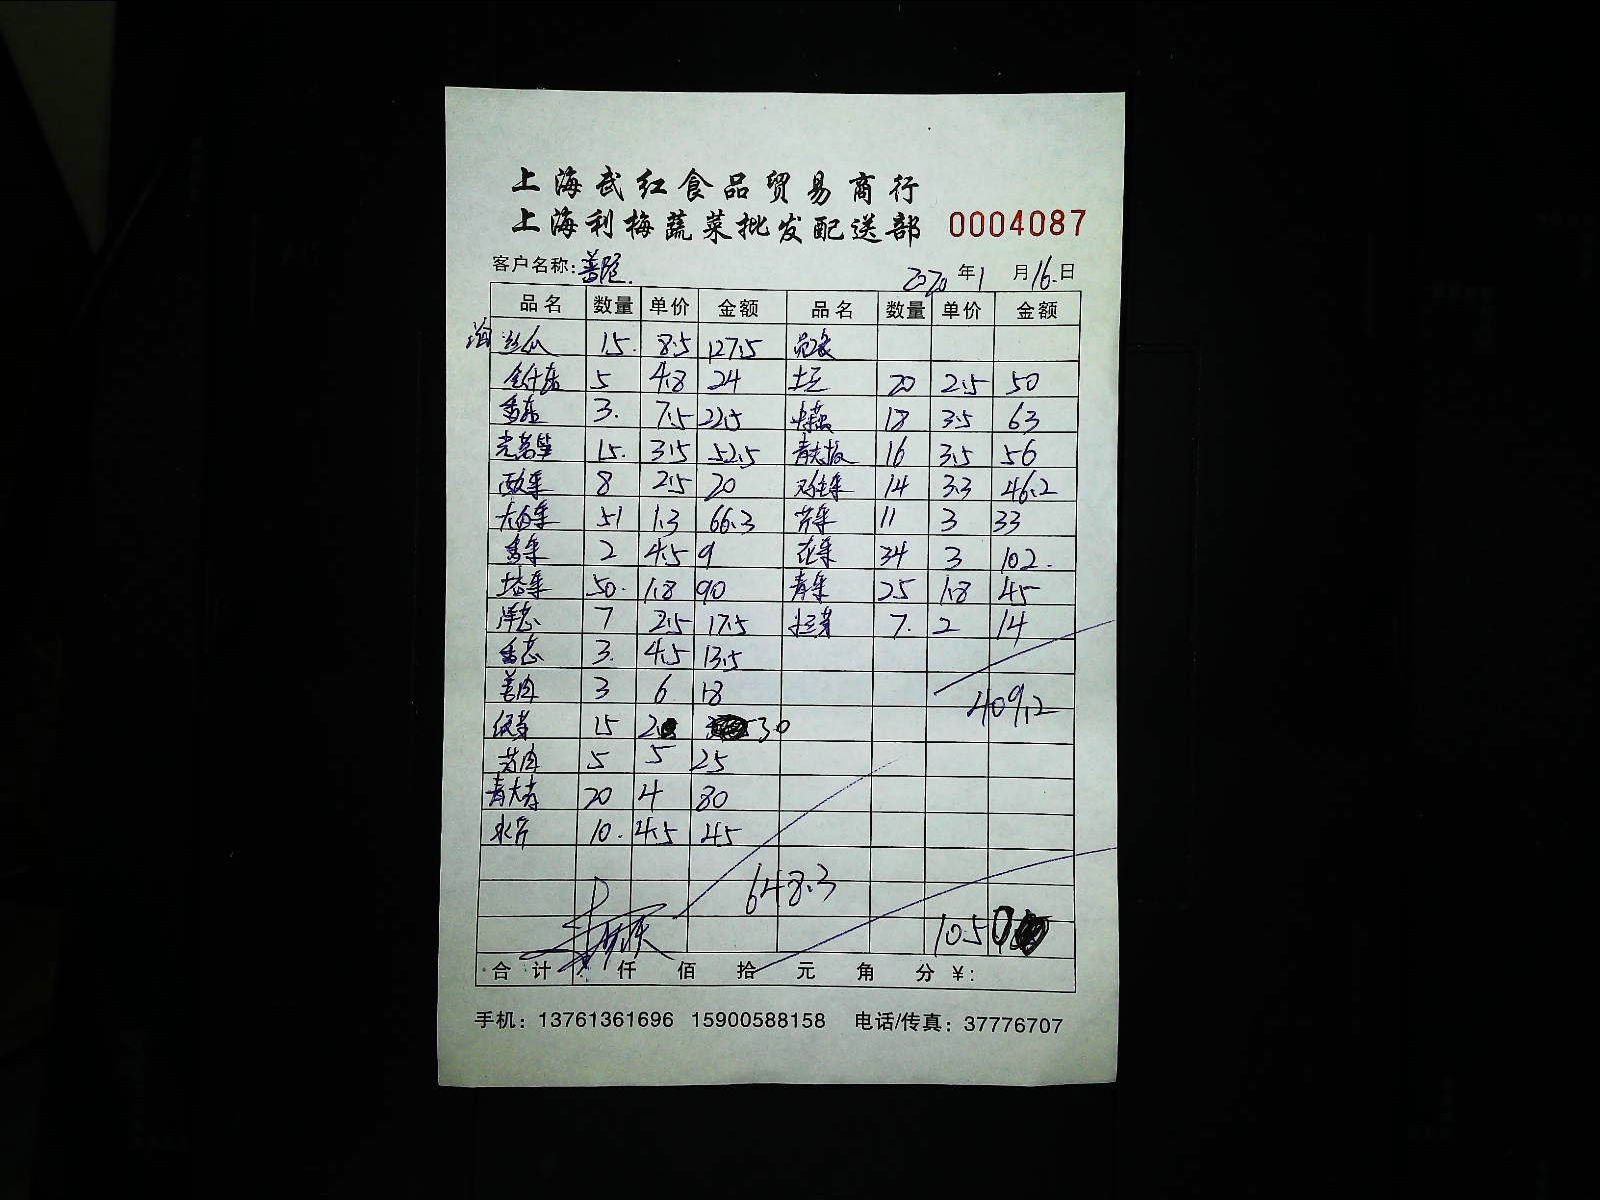 上海武红食品贸易商行
上海利梅蔬菜批发配送部 0004087
客户名称: 2020年1月16日
品名 数量 单价 金额 品名 数量 单价 金额
丝瓜 15 8.5 127.5
5 4.8 24 土豆 20 2.5 50
香 3 7.5 22.5 18 3.5 63
光莴笋 15 3.5 52.5 青大椒 16 3.5 56
8 2.5 20 14 3.3 46.2
大白菜 51 1.3 66.3 芹菜 11 3 33
香菜 2 4.5 9 花菜 34 3 102
塔菜 50 1.8 90 青菜 25 1.8 45
洋葱 7 2.5 17.5 7 2 14
香葱 3 4.5 13.5
姜肉 3 6 18 409.2
15 2 30
肉 5 5 25
青大 20 4 80
水芹 10 4.5 45
648.3
1050
合计 仟 佰 拾 元 角 分 ¥:
手机: 13761361696 15900588158 电话/传真: 37776707